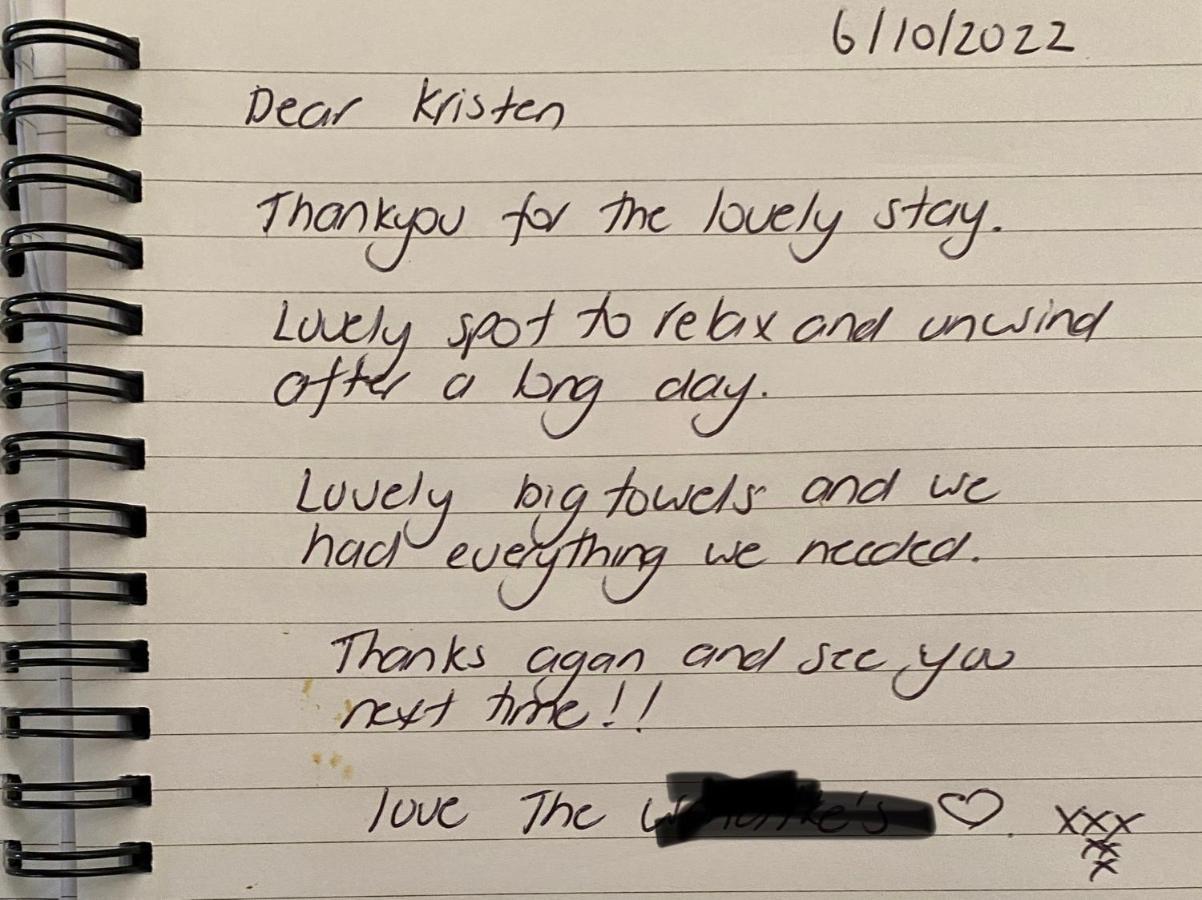 6/10/2022
Dear Kristen
Thankyou for the lovely stay.
Lovely spot to relax and unwind
after a long day.
Lovely big towels and we
had everything we needed.
Thanks agan and see you
next time!!
love The ♡. xxx
xx
x